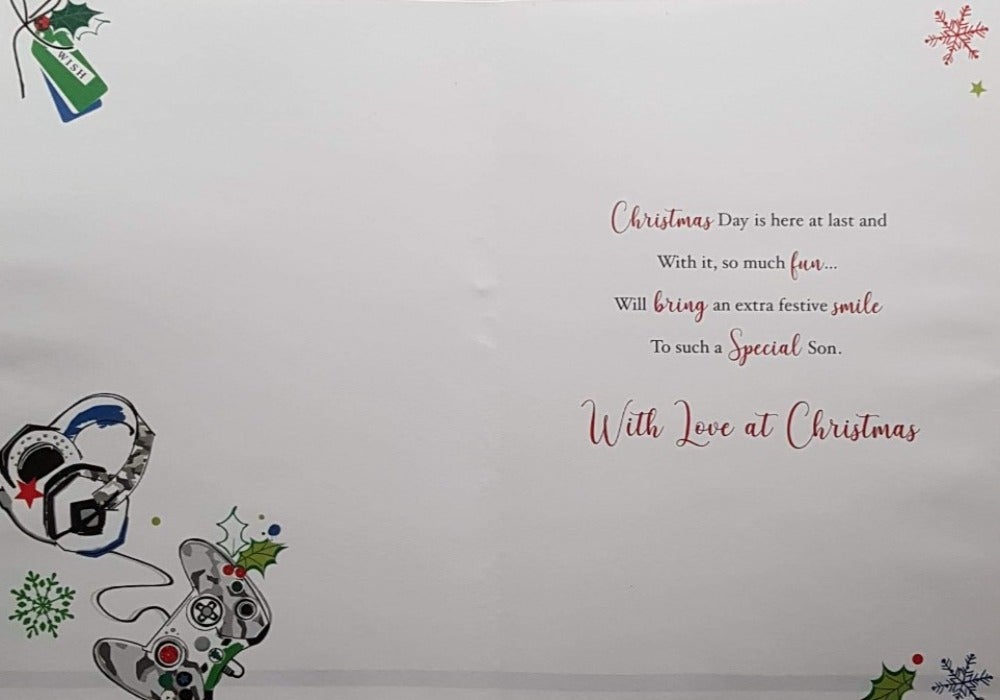 WISH
Christmas Day is here at last and
With it, so much fun...
Will bring an extra festive smile
To such a Special Son.
With Love at Christmas